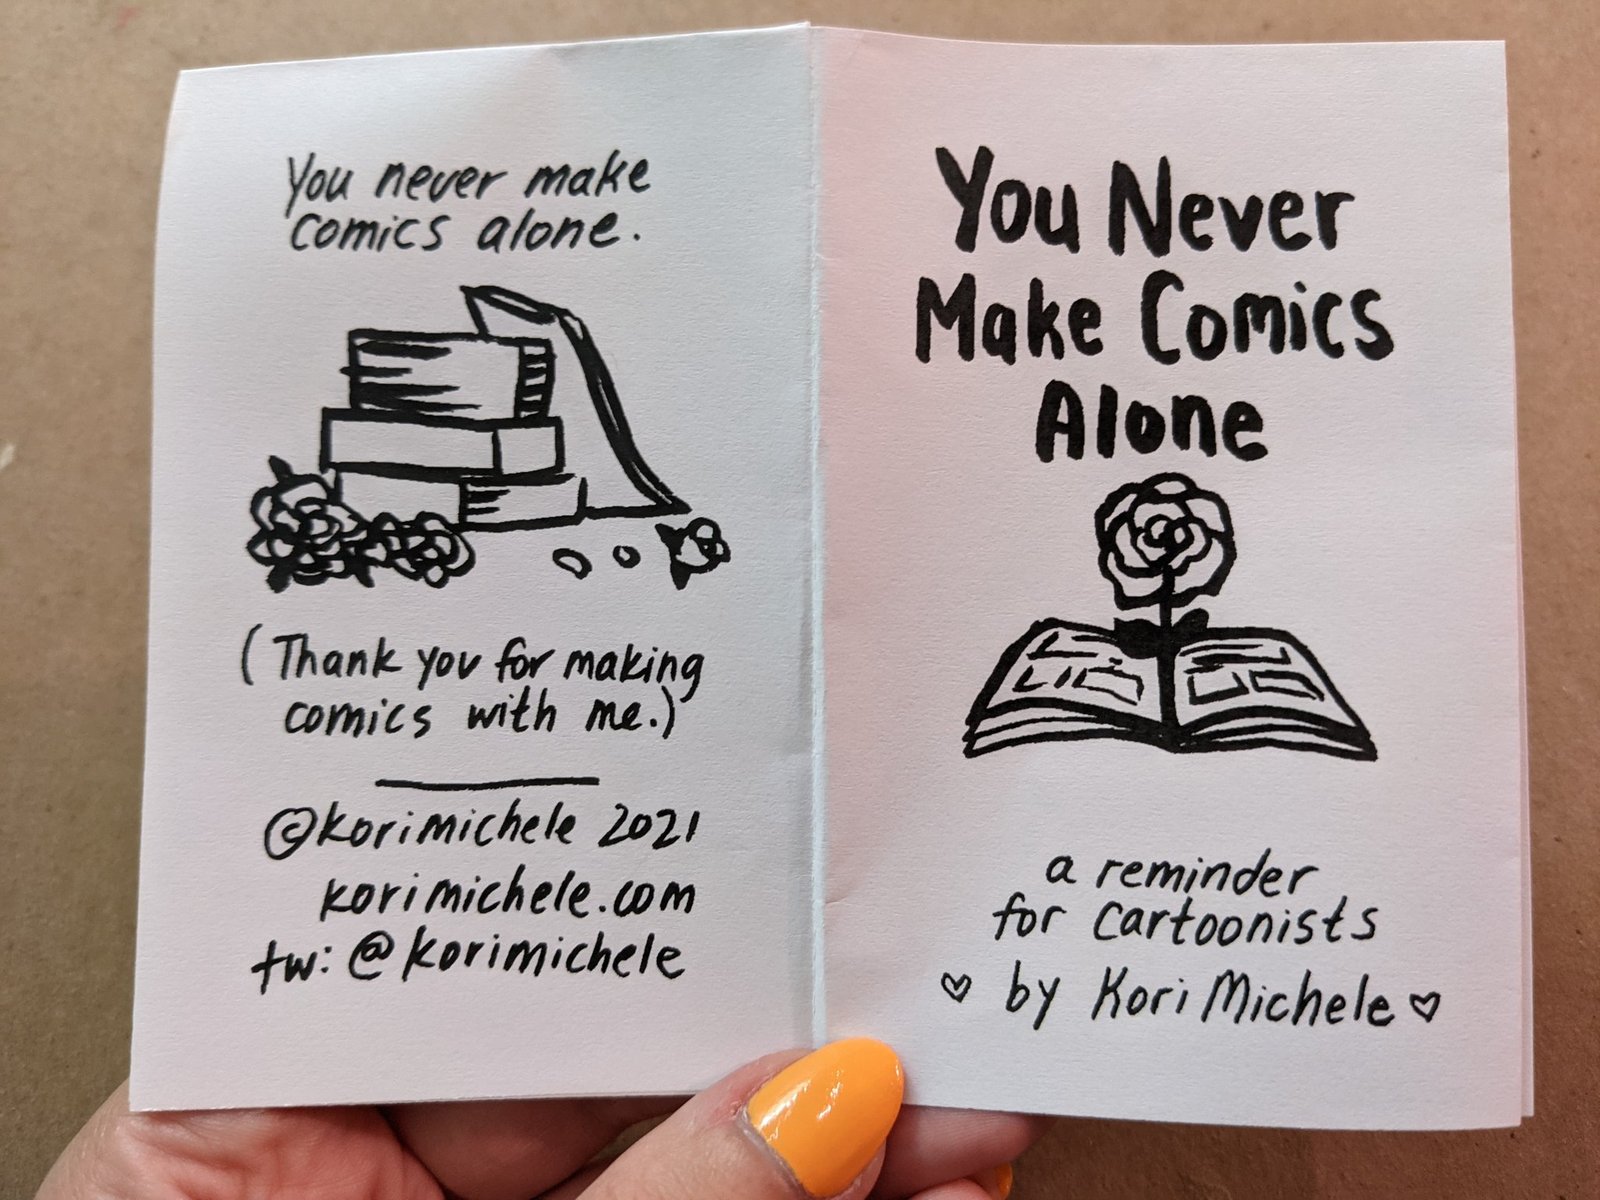 You never make
comics alone.
(Thank you for making
comics with me.)
©korimichele 2021
korimichele.com
tw: @korimichele
You Never
Make Comics
Alone
a reminder
for cartoonists
♡ by Kori Michele ♡